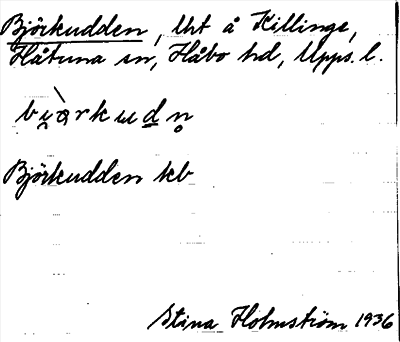 Björkudden, lht å Killinge,
Håtuna sn, Håbo hd, Upps. l.
Björkudden kb
Stina Holmström 1936